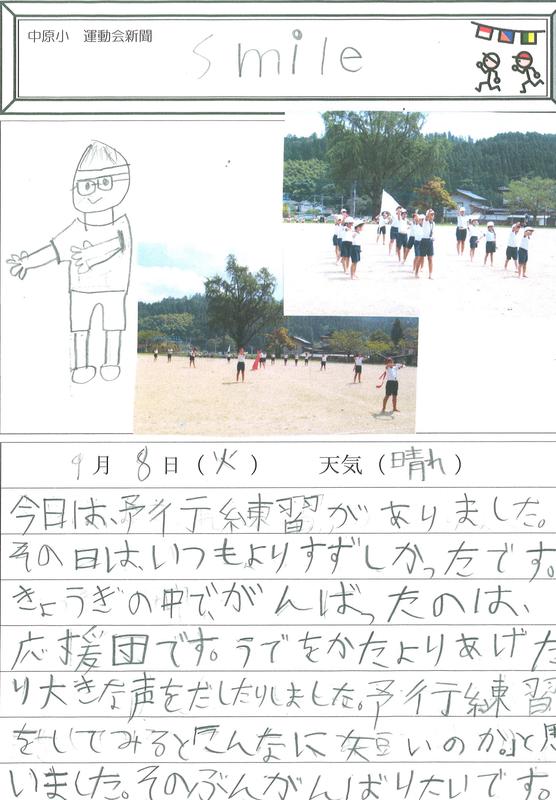 中原小 運動会新聞
smile
9月8日(火) 天気(晴れ)
今日は、予行練習がありました。
その日は、いつもよりすずしかったです。
きょうぎの中で、がんばったのは、
応援団です。うでをかたよりあげた
り大きな声をだしたりしました。予行練習
をしてみると「こんなに短いのか。」と思
いました。そのぶんがんばりたいです。